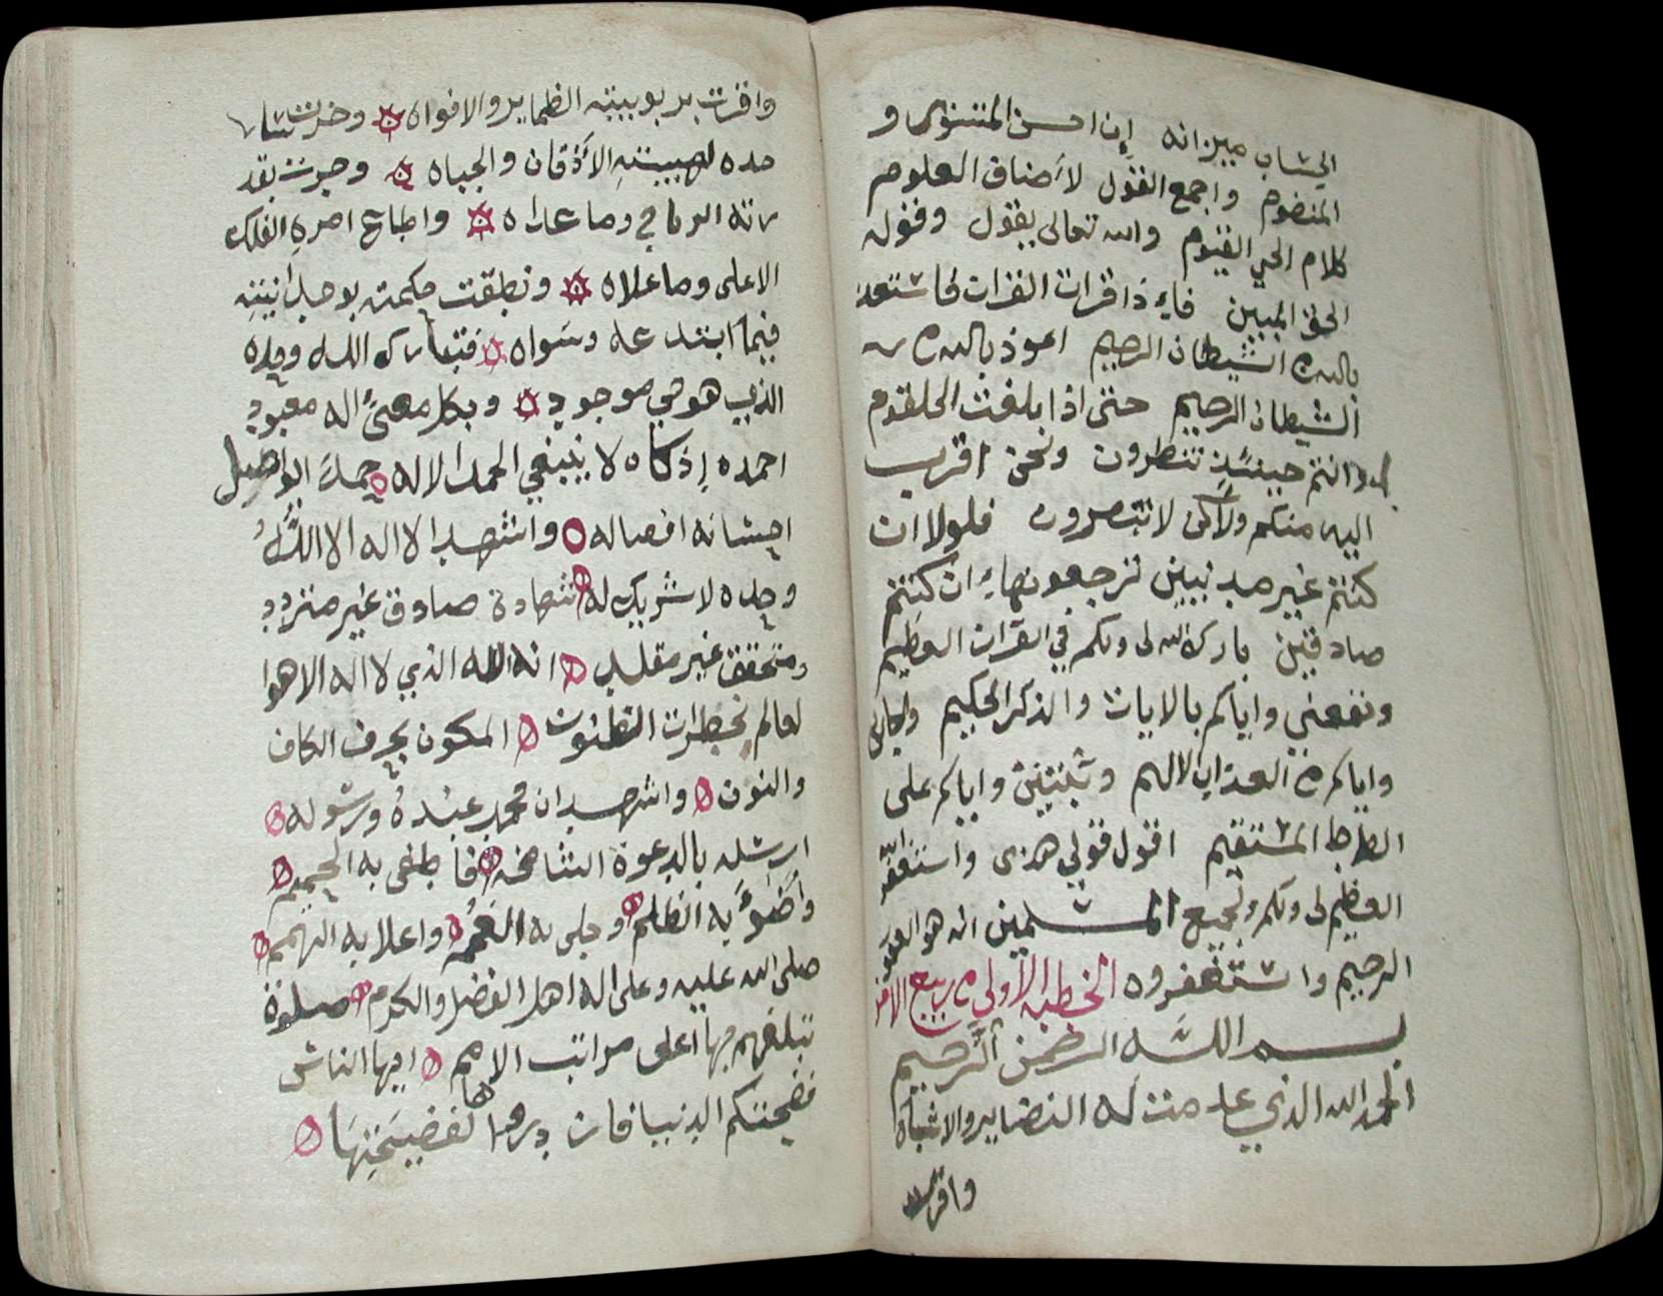 الحساب ميزانه إن احسن المنثور و
المنضوم واجمع القول لأصناف العلوم
كلام الحي القيوم والله تعالى يقول وقوله
الحق المبين فإذا قرات القران فاستعذ
بالله من الشيطان الرجيم اعوذ بالله من
الشيطان الرجيم حتى اذا بلغت الحلقوم
وانتم حينئذ تنظرون ونحن اقرب
اليه منكم ولاكن لا تبصرون فلولا ان
كنتم غير مدينين ترجعونها ان كنتم
صادقين بارك الله لى ولكم في القرآن العظيم
ونفعني واياكم بالايات والذكر الحكيم واجارنى
واياكم من العذاب الاليم وثبتني واياكم على
الصراط المستقيم اقول قولي هذى واستغفر الله
العظيم لى ولكم ولجميع المسلمين انه هو الغفور
الرحيم واستغفروه الخطبه الاولى من ربيع الاخر
بسم اللَّه الرحمن الرحيم
الحمد لله الذي عدمت له النضاير والاشباه
واقرت
واقرت بربوبيته الظماير والافواه وخرت سا
جده لهيبته الأذقان والجباه وجرت بقد
رته الرياح وما عداه واطاع امره الفلك
الاعلى وما علاه ونطقت حكمته بوحدانيته
فيما ابتدعه وسواه فتبارك الله وحده
الذي هو حي موجود وبكل معنىً اله معبود
احمده إذ كان لا ينبغي الحمد الا له حمدَ الواصل
احسانه افصاله واشهد الا اله الا اللَّهُ
وحده لا شريك له شهادة صادق غير متردد
ومتحقق غير مقلد انه الله الذي لا اله الا هوا
لعالم بخطرات الظنون المكون بحرف الكاف
والنون واشهد ان محمد عبدهُ ورسوله
ارسله بالدعوة الشامخه فأطفى به الجحيم
واضوءَ به الظلم وجلى به الغمم واعلا به الهمم
صلى الله عليه وعلى اله اهل الفضل والكرم صلوة
تبلغهم بها اعلى مراتب الامم ايها الناس
فضحتكم الدنيا فان درهما لفضيحتها